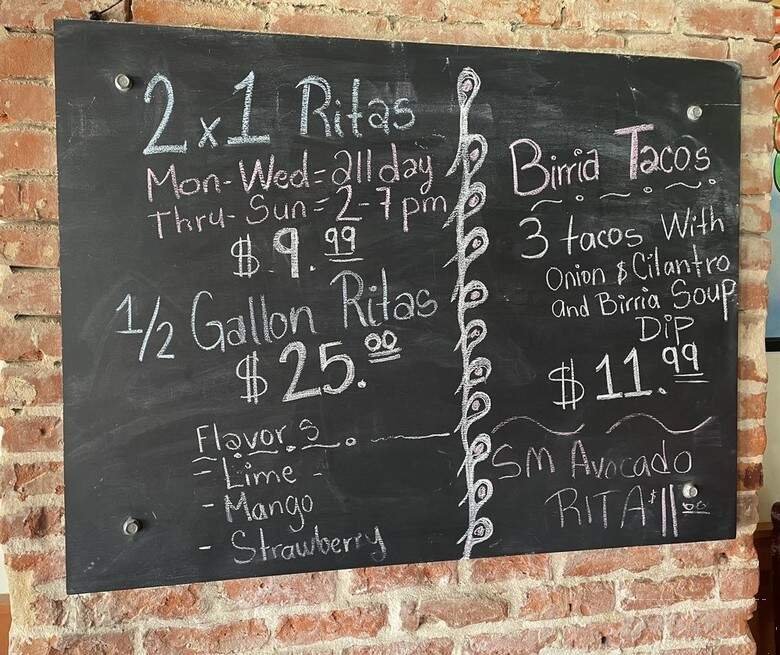 2x1 Ritas
Mon-Wed=all day
Thru-Sun=2-7pm
$9.99
1/2 Gallon Ritas
$25.00
Flavor.s
-Lime-
-Mango
-Strawberry
Birria Tacos
3 tacos With
Onion $ Cilantro
and Birria Soup
Dip
$11.99
SM Avocado
RITA $11.00